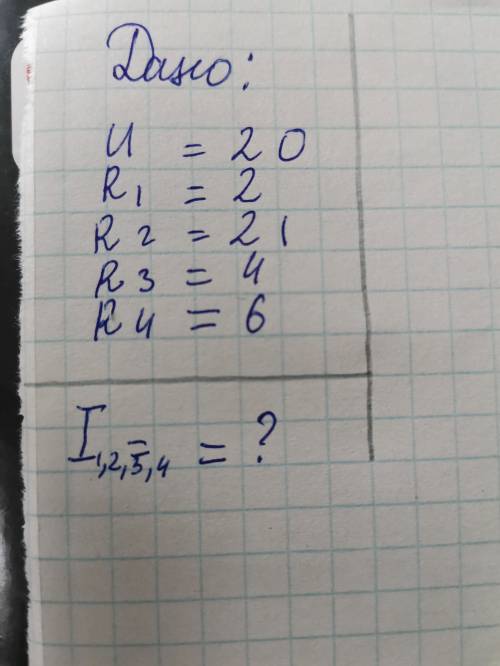 Дано:
U = 20
R1 = 2
R2 = 21
R3 = 4
R4 = 6
I1,2,3,4 = ?